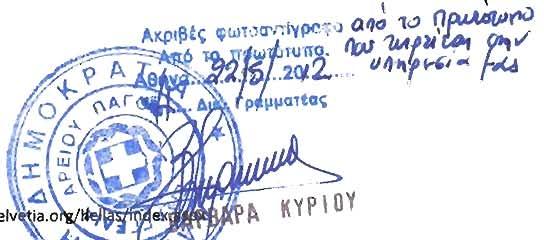 Ακριβές φωτοαντίγραφο από το πρωτότυπο
Από το πρωτότυπο. που τηρείται στην
Αθήνα... 22/5/2012 υπηρεσία μας
Δικ. Γραμματέας
ΔΗΜΟΚΡΑΤ
ΑΡΕΙΟΥ ΠΑΓΟΥ
elvetia.org/hellas/index
ΒΑΡΒΑΡΑ ΚΥΡΙΟΥ